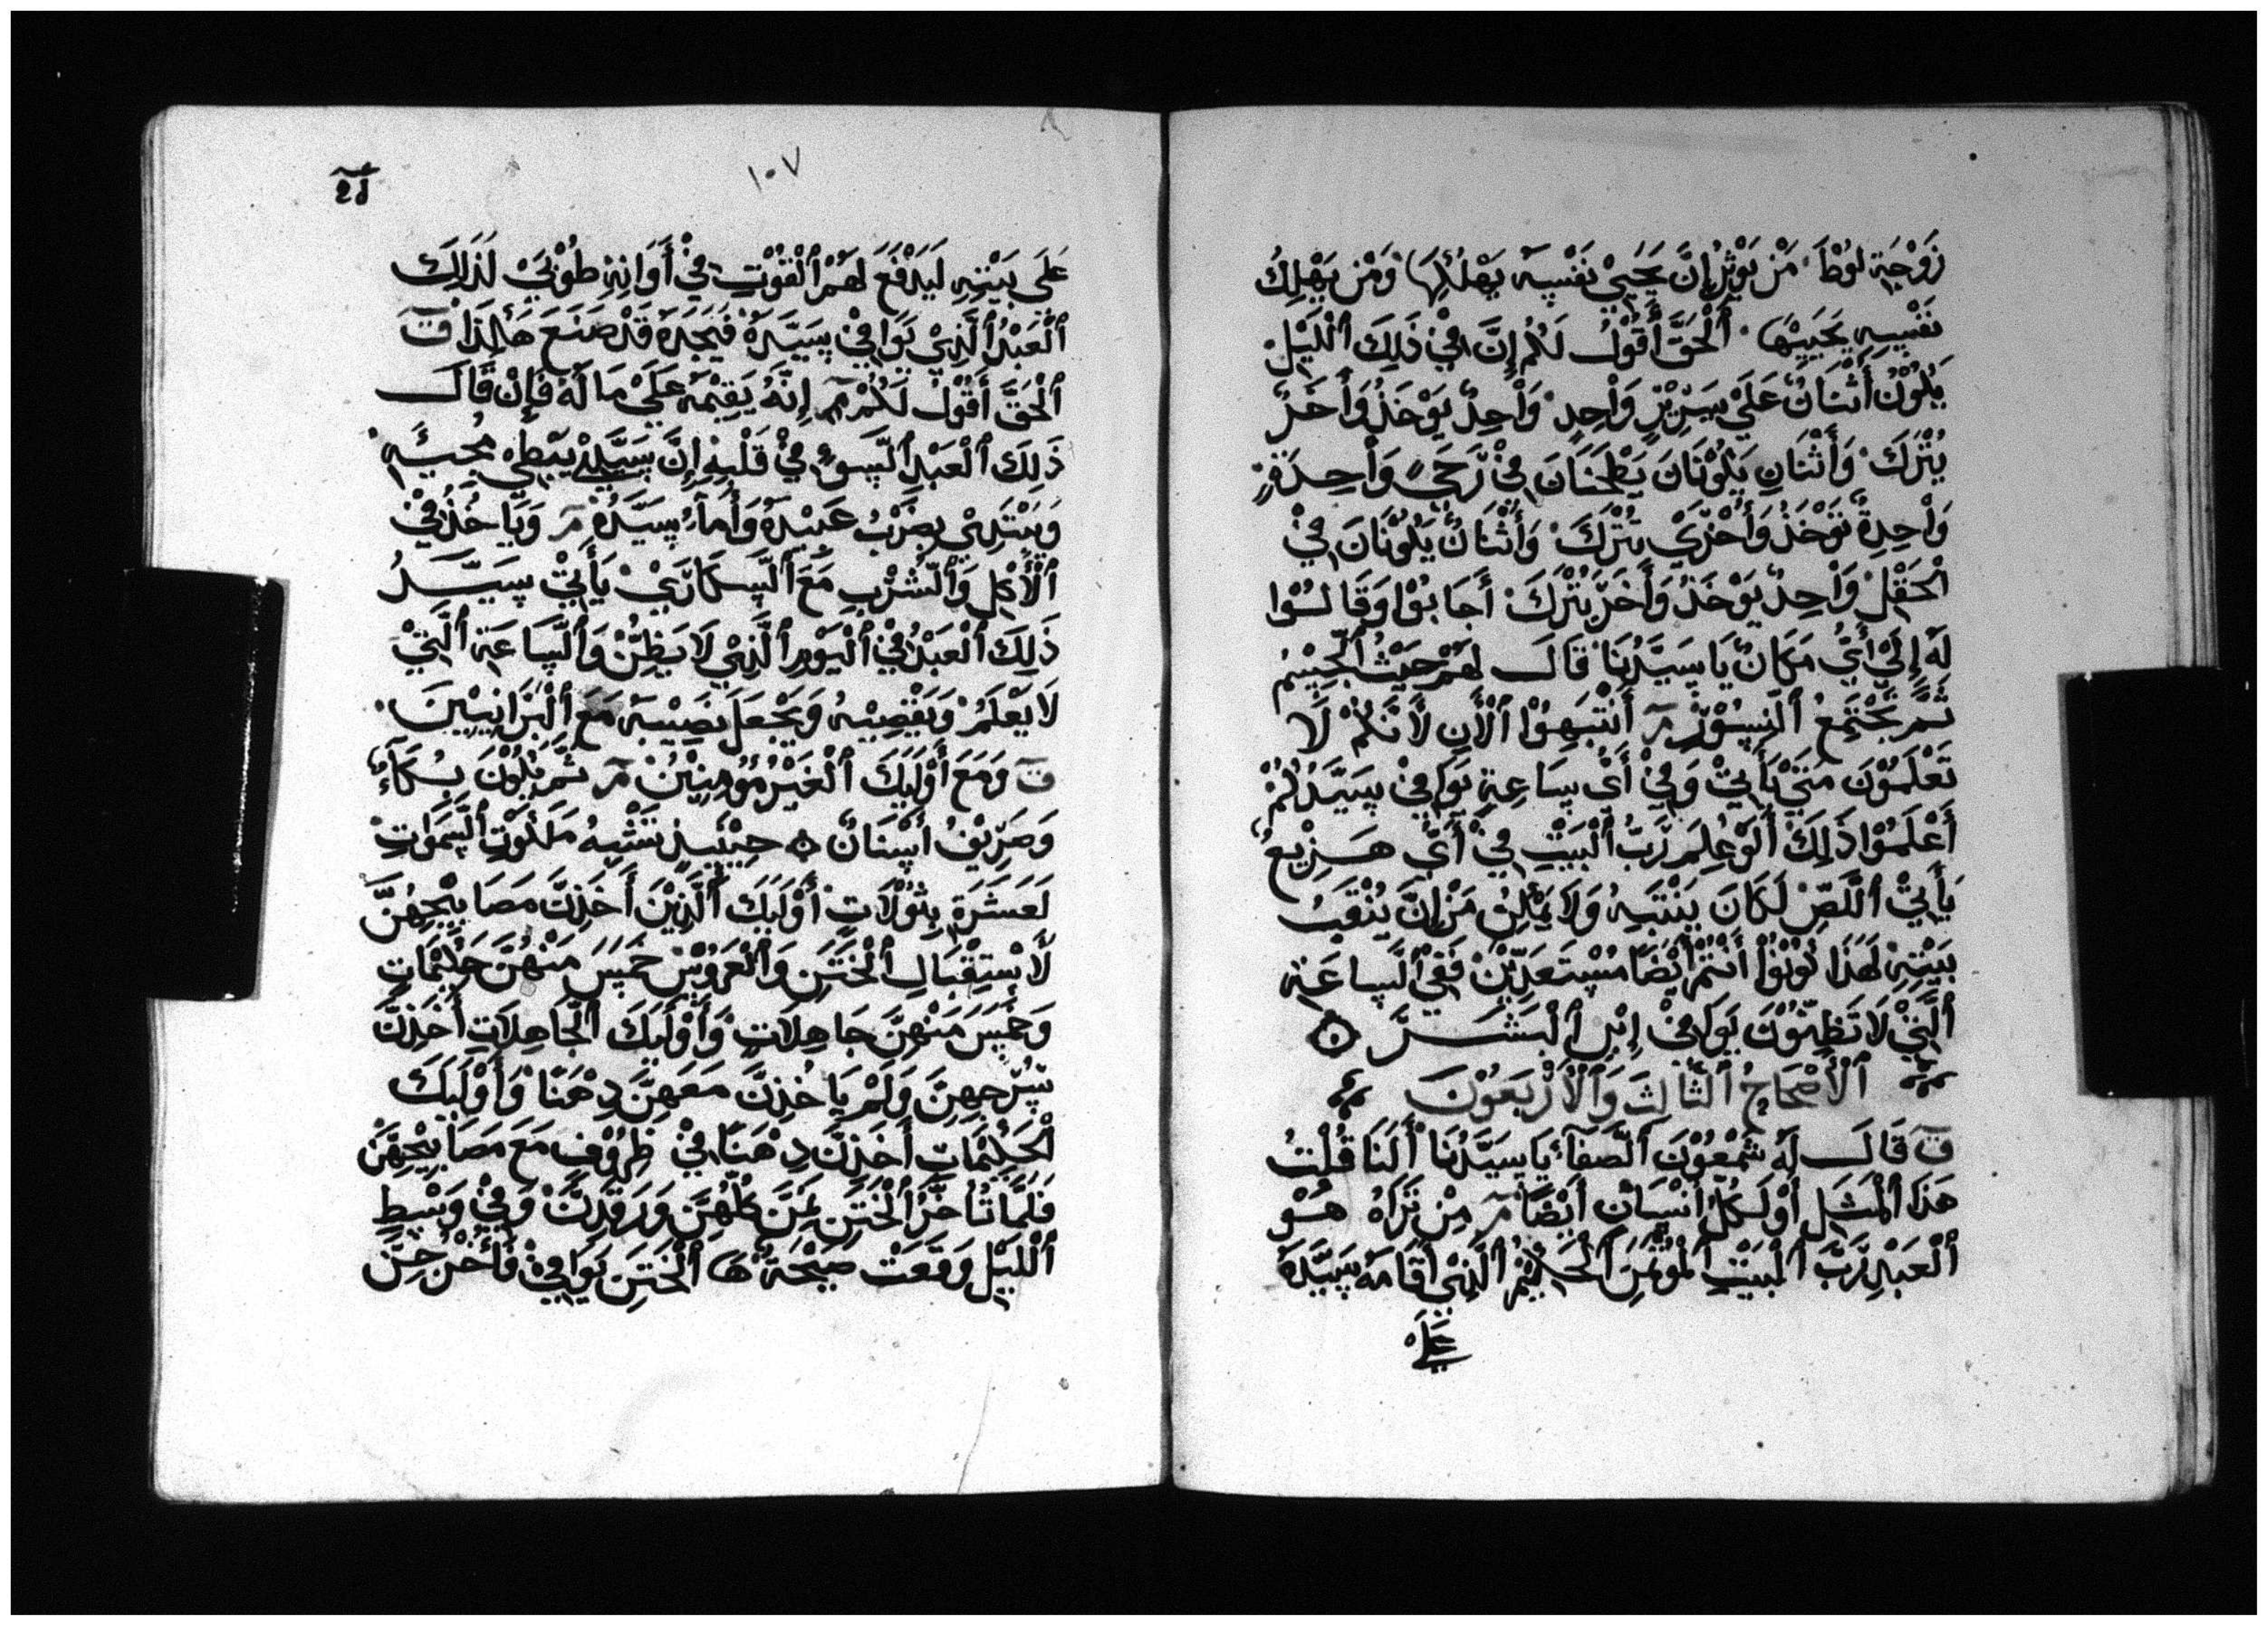 زَوْجَةِ لُوْطَا مَنْ يُوْثِرُ إِنَّ يُحَيِيْ نَفْسِهِ يُهْلِكُهَا وَمَنْ يُهْلِكُ
نَفْسِهِ يُحَيِيْهَا ٱلْحَقَّ أَقُوْلُ لَكُمْ إِنَّ فِيْ ذَلِكَ ٱللَّيْلِ
يَكُوْنُ أَثْنَانُ عَلَيْ سَرِيْرٍ وَاْحِدٍ وَاْحِدٌ يُوْخَذُ وَأَخَرٌ
يُتْرَكَ وَأَثْنَانِ يَكُوْنَانَ يَطْحَنَانَ فِيْ رَحَيً وَاْحِدَةٍ
وَاْحِدَةٌ تُوْخَذُ وَأُخْرَيْ تُتْرَكَ وَأَثْنَانٌ يَكُوْنَانَ فِيْ
ٱلْحَقْلِ وَاْحِدٌ يُوْخَذُ وَأَخَرٌ يُتْرَكَ أَجَابُوْا وَقَالُوْا
لَهُ إِلَيْ أَيُّ مَكَانٌ يَا سَيِّدُنَا قَالَ لَهُمْ حَيْثُ ٱلْجِسْمِ
ثَمَّ تَجْتَمِعُ ٱلنُّسُوْرُ مر أَنْتَبِهُوْا ٱلْأَنِ لَأَنَّكُمْ لَا
تَعْلَمُوْنَ مَتَيْ يَأَتِيْ وَفِيْ أَيْ سَاعَةِ يُوَافِيْ سَيِّدُكُمْ
أَعْلَمُوْا ذَلِكَ أَلَوْ عُلِمَ رَبُّ ٱلْبَيْتِ فِيْ أَيِّ هَزِيْعٍ
يَأَتِيْ ٱللَّصِّ لَكَانَ يَنْتَبِهُ وَلَا يُمْكِنُ مَنْ إِنَّ يُنْقَبُ
بَيْتِهِ لَهَذَا كُوْنُوْا أَنْتُمْ أَيْضًا مُسْتَعَدِّيْنَ فَفِي ٱلسَّاعَةِ
ٱلَّتِيْ لَا تَظِنُّوْنَ يُوَافِيْ إِبْنِ ٱلْبَشَرَ
ٱلْأَصْحَاحُ ٱلثَّالِثَ وَٱلْأَرْبَعُوْنَ
ق قَالَ لَهُ شَمْعُوْنَ ٱلصَّفَآءُ يَا سَيِّدُنَا أَلَنَا قُلْتُ
هَذَا ٱلْمَثَلِ أَوْ لَكُلِّ أَنْسَانٍ أَيْضًا مر مِنْ تَرَاهُ هُوْ
ٱلْعَبْدِ رَبَّ ٱلْبَيْتِ ٱلْمُوْتَمَنِ ٱلْحَكِيْمِ ٱلَّذِيْ أَقَامَهُ سَيِّدَهُ
عَلَيْ
١٠٧
عَلَي بَيْتِهِ لَيَدْفَعَ لَهُمُ ٱلْقُوْتِ فِيْ أَوَانِهِ طُوْبَيْ لَذَلِكَ
ٱلْعَبْدُ ٱلَّذِيْ يُوَافِيْ سَيِّدَهُ فَيَجِدَهُ قَدْ صَنَعَ هَاكَذَا ق
ٱلْحَقَّ أَقُوْلُ لَكُمْ مر إِنَّهُ يُقِيْمَهُ عَلَيْ مَا لَهُ فَإِنْ قَالَ
ذَلِكَ ٱلْعَبْدِ ٱلسَّوِءُ فِيْ قَلْبِهِ إِنَّ سَيِّدِيْ يُبْطِيْ مُجِيْئَهِ
وَيَبْتَدِيْ بِضَرْبُ عَبِيْدَهُ وَأَمَآءُ سَيِّدَهُ مر وَيَأَخُذُ فِيْ
ٱلْأَكْلِ وَٱلشُّرْبِ مَعَ ٱلسَّكَارَيْ يَأَتِيْ سَيِّدُ
ذَلِكَ ٱلْعَبْدُ فِيْ ٱلْيَوْمِ ٱلَّذِيْ لَا يَظِنُّ وَٱلسَّاعَةِ ٱلَّتِيْ
لَا يَعْلَمُ وَيُقْصِيْهُ وَيَجْعَلَ نَصِيْبَهُ مَعَ ٱلْبَرَانِيْيْنَ
ق وَمَعَ أُوْلَيَكَ ٱلْغَيْرُ مُؤُمِنِيْنُ مر ثُمَّ يَكُوْنَ بُكَآءٌ
وَصَرِيْفُ أَسْنَانٌ حِيْنَيِذٍ تَشْبِهُ مَلَكُوْتِ ٱلسَّمَوَاتِ
لَعَشَرَةِ بَتُوْلَاتٍ أُوْلَيَكَ ٱلَّذِيْنَ أَخَذِنَّ مَصَابِيْحِهُنَّ
لَأَسْتِقْبَالِ ٱلْخَتَنِ وَٱلْعَرُوْسِ خَمْسَ مَنْهُنَّ حَكِيْمَاتٍ
وَخَمْسَ مَنْهِنَّ جَاهِلَاتٍ وَأُوْلَيَكَ ٱلْجَاهِلَاتِ أَخَذِنَّ
سُرُجِهِنَّ وَلَمْ يَاخُذِنَّ مَعَهِنَّ دِهْنًا وَأُوْلَيَكَ
ٱلْحَكِيْمَاتِ أَخَذِنَّ دِهْنًا فِيْ ظِرُوْفٍ مَعَ مَصَابِيْحِهِنَّ
فَلَمَّا تُأَخَّرُ ٱلْخَتَنِ نَمِنَّ كُلُّهِنَّ وَرَقَدِنَّ وَفِيْ وَسْطِ
ٱللَّيْلِ وَقَعَتْ صَيْحَةٌ هَا ٱلْخَتَنِ يُوَافِيْ فَأَخْرُجِنَّ